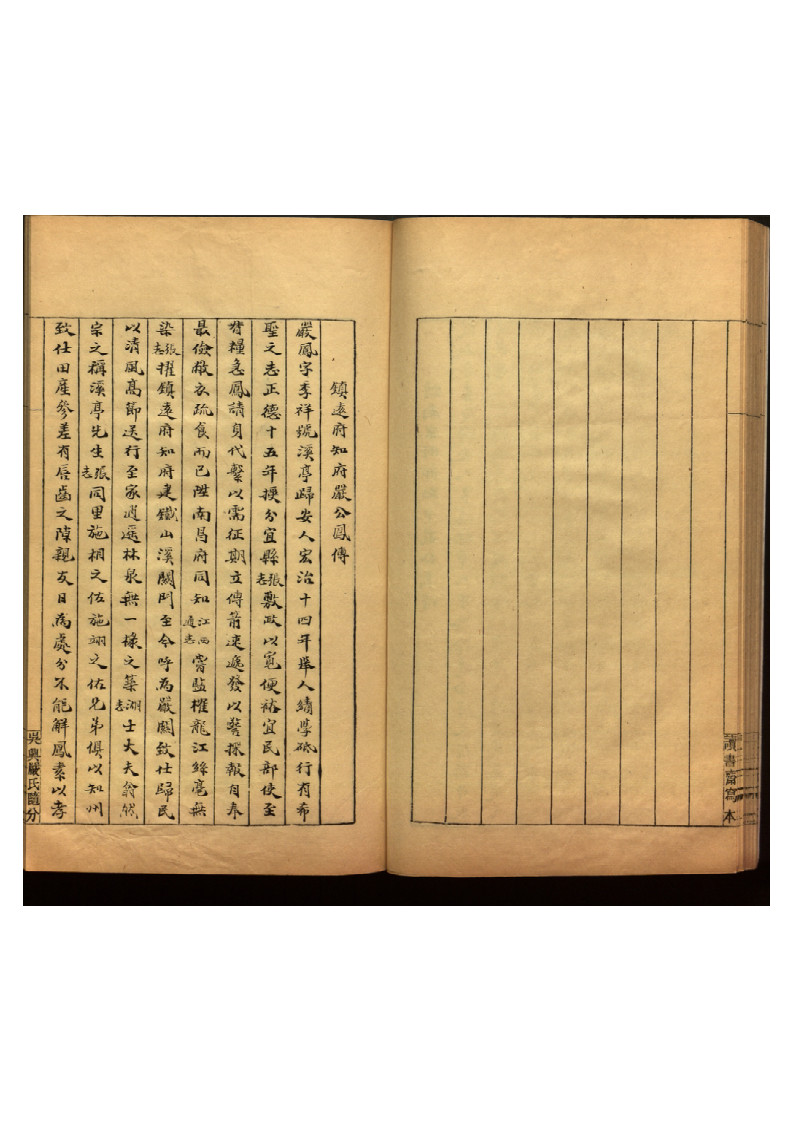 讀書齋寫本
鎮遠府知府嚴公鳳傳
嚴鳳字李祥號溪亭歸安人宏治十四年舉人績學砥行有希
聖之志正德十五年授分宜縣張志敷政以寬便袨宜民部使至
督糧急鳳請身代繫以需征期立傳箭速遞發以警探報自奉
最儉敝衣疏食而已陞南昌府同知江西通志嘗監榷龍江絲毫無
染張志擢鎮遠府知府建鐵山溪關門至今呼為嚴關致仕歸民
以清風高節送行至家逍遙林泉無一椽之築湖志士大夫翕然
宗之稱溪亭先生張志同里施相之佐施翊之佑兄弟俱以知州
致仕田產參差有唇齒之隙親友日為處分不能解鳳素以孝
吳興嚴氏隨分